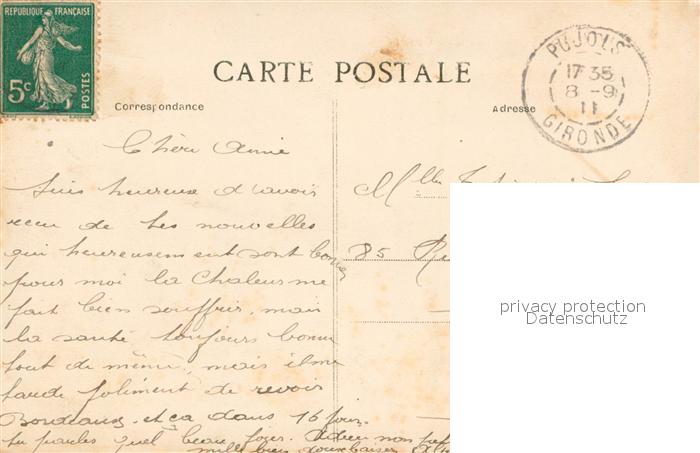 REPUBLIQUE FRANÇAISE
5c
POSTES
CARTE POSTALE
Correspondance
Adresse
PUJOLS
17 35
8 -9
11
GIRONDE
Chère Amie
Suis heureuse d'avoir
recu de tes nouvelles
qui heureusement sont bonnes
pour moi la Chaleur me
fait bien souffrir, mais
la santé toujours bonne
tout de même, mais il me
tarde joliment de revoir
Bordeaux et ça dans 16 jours.
tu parles quel beau jour. Adieu
mille bien doux baisers
Mlle
85
privacy protection
Datenschutz